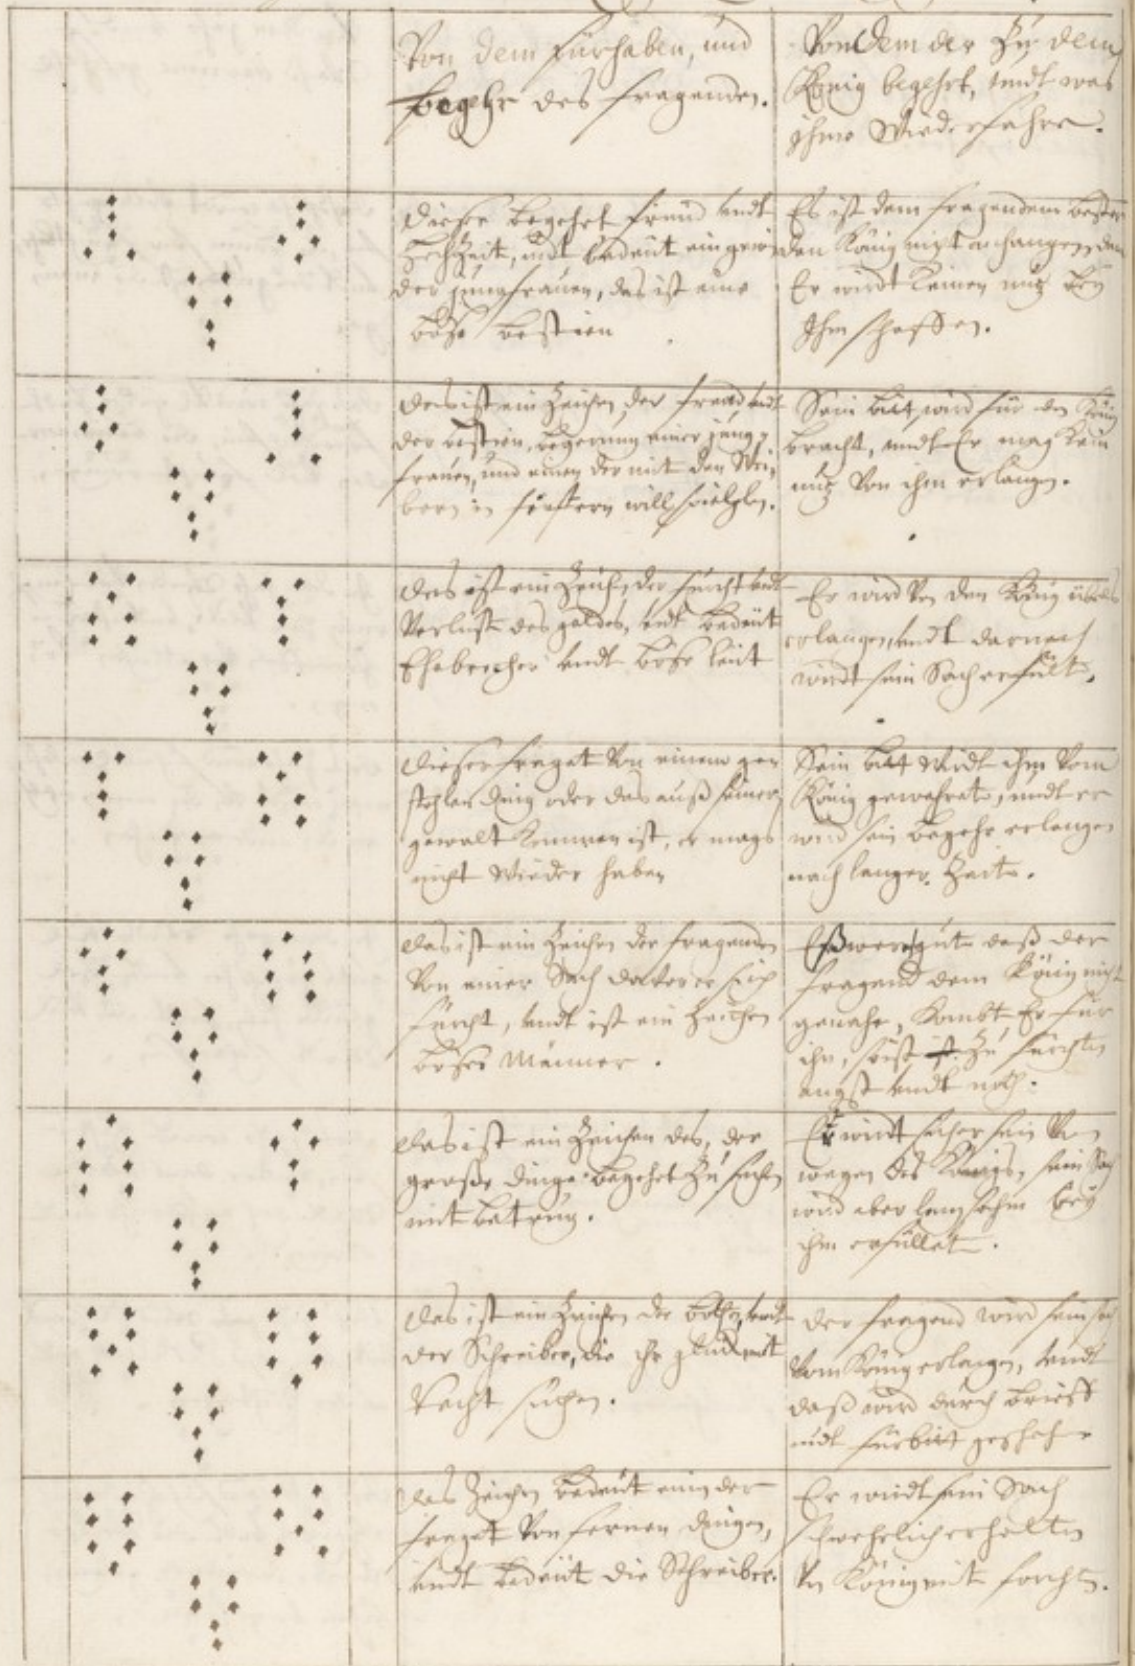 Von dem fürhaben, und
begehr des fragenden.
Von dem der zu dem
König begehrt, undt was
ihme Wiederfahre.
Dieser begehrt freud undt
Hochzeit, undt bedeut ein
der junckfrauen, das ist eine
böse bestien
Es ist dem fragendem besser
den König nicht anhangen, dan
Er wirdt keinen nutz bey
Ihm schaffen.
Das ist ein Zeichen der freud, undt
der bestien, begerung einer jung,
frauen, und einen der mit den Wei,
bern in will
Sein bitt wird für den König
bracht, undt Er mag kein
nutz von ihm erlangen.
Das ist ein Zeichen der furcht undt
Verlust des geldes, undt bedeut
Ehebrecher undt böse leut
Er wird von dem König übels
erlangen, undt darnach
wirdt sein Sach erfült.
Dieser fraget von einem ge
stohlen ding oder das auß seiner
gewalt kommen ist, er mags
nicht Wieder haben
Sein bitt wirdt ihm vom
König gewehret, undt er
wird sein begehr erlangen
nach langer Zeit.
Das ist ein Zeichen der fragenden
von einer Sach darvor er sich
fürcht, undt ist ein Zeichen
böser Männer.
Eß were gut daß der
fragend dem König nicht
genahe, kombt Er für
ihn, so ist zu fürchten
angst undt noth.
Das ist ein Zeichen des, der
große dinge begehrt zu suchen
mit betrug.
Er wirdt sicher sein von
wegen des Königs, sein Sach
wird aber langsahm bey
ihm erfüllet.
Das ist ein Zeichen der bothen, undt
der Schreiber, die ihr mit
Recht suchen.
der fragend wird sein sach
vom König erlangen, undt
daß wird durch brieff
undt fürbitt geschehen
Das Zeichen bedeut einen der
fraget von fernen dingen,
undt bedeut die Schreiber.
Er wirdt sein Sach
schwehrlich erhalten
vom König mit forcht.